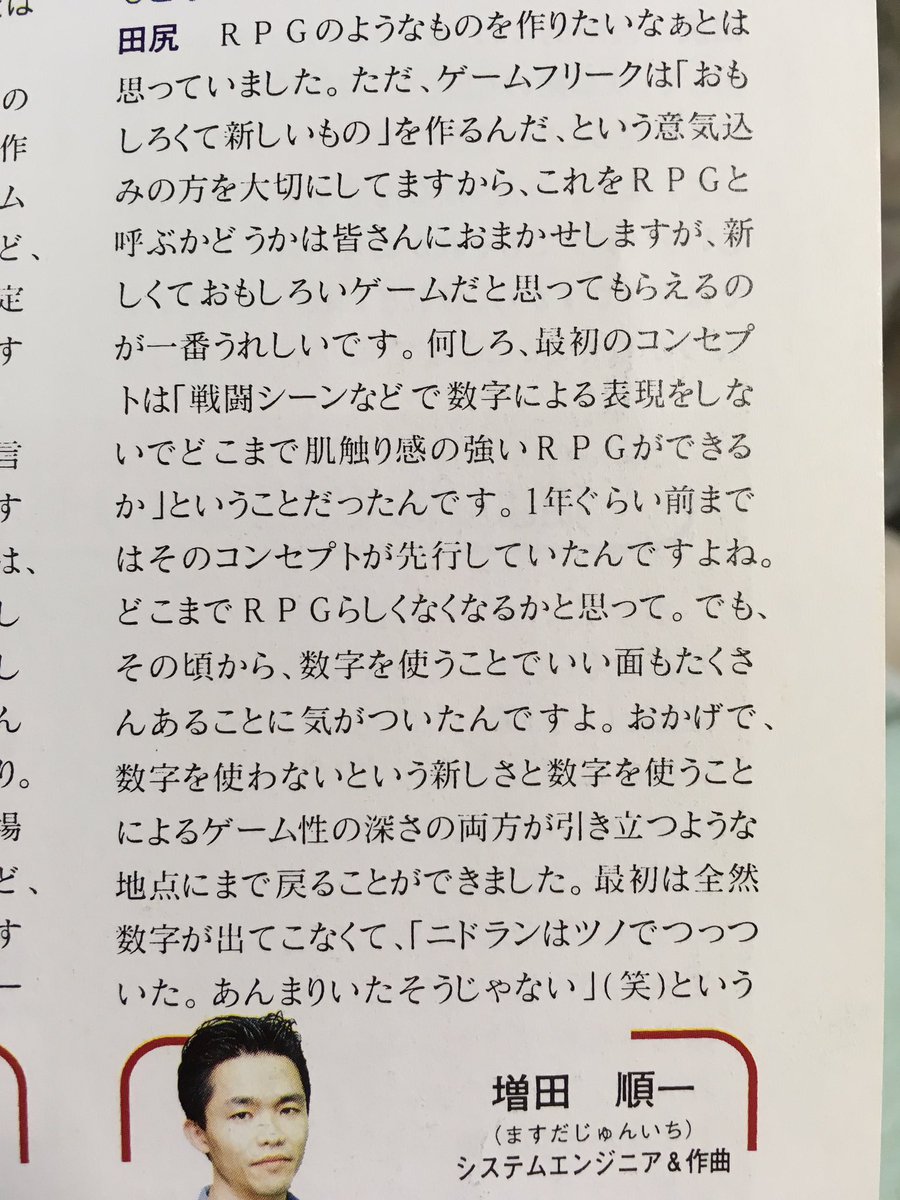 田尻　RPGのようなものを作りたいなぁとは
思っていました。ただ、ゲームフリークは「おも
しろくて新しいもの」を作るんだ、という意気込
みの方を大切にしてますから、これをRPGと
呼ぶかどうかは皆さんにおまかせしますが、新
しくておもしろいゲームだと思ってもらえるの
が一番うれしいです。何しろ、最初のコンセプ
トは「戦闘シーンなどで数字による表現をしな
いでどこまで肌触り感の強いRPGができる
か」ということだったんです。1年ぐらい前まで
はそのコンセプトが先行していたんですよね。
どこまでRPGらしくなくなるかと思って。でも、
その頃から、数字を使うことでいい面もたくさ
んあることに気がついたんですよ。おかげで、
数字を使わないという新しさと数字を使うこと
によるゲーム性の深さの両方が引き立つような
地点にまで戻ることができました。最初は全然
数字が出てこなくて、「ニドランはツノでつっつ
いた。あんまりいたそうじゃない」(笑)という
増田　順一
(ますだじゅんいち)
システムエンジニア&作曲
の
作
ム
ど、
定
す
言
す
は、
し
し
ん
り。
場
ど、
す
ー